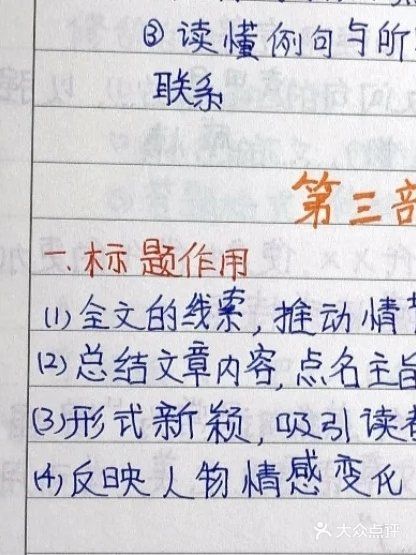 ③读懂例句与所
联系
第三部
一、标题作用
(1)全文的线索，推动情
(2)总结文章内容，点名主旨
(3)形式新颖，吸引读
(4)反映人物情感变化
大众点评